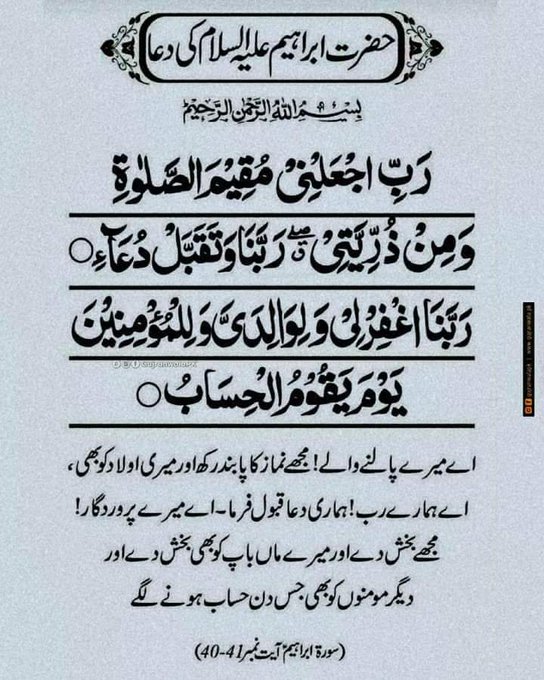 حضرت ابراہیم علیہ السلام کی دعا
بِسْمِ اللهِ الرَّحْمٰنِ الرَّحِيْمِ
رَبِّ اجْعَلْنِيْ مُقِيْمَ الصَّلٰوةِ
وَمِنْ ذُرِّيَّتِيْ ۖ رَبَّنَا وَتَقَبَّلْ دُعَآءِ ○
رَبَّنَا اغْفِرْ لِيْ وَلِوَالِدَيَّ وَلِلْمُؤْمِنِيْنَ
يَوْمَ يَقُوْمُ الْحِسَابُ ○
GujranwalaPK
اے میرے پالنے والے! مجھے نماز کا پابند رکھ اور میری اولاد کو بھی،
اے ہمارے رب! ہماری دعا قبول فرما۔ اے میرے پروردگار!
مجھے بخش دے اور میرے ماں باپ کو بھی بخش دے اور
دیگر مومنوں کو بھی جس دن حساب ہونے لگے
(سورۃ ابراہیمؑ آیت نمبر 41-40)